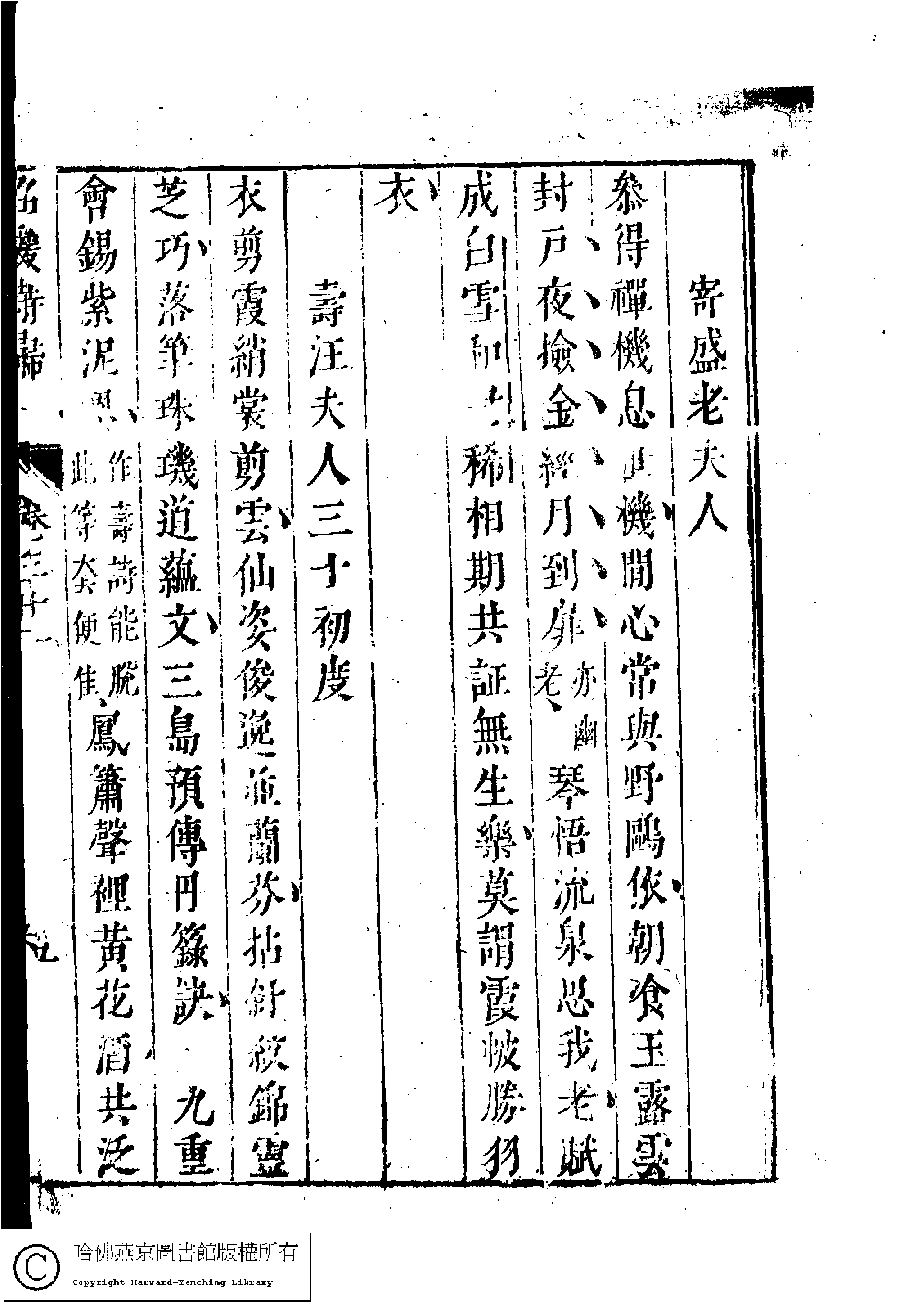 寄盛老夫人
叅得禪機息世機閒心常與野鷗依朝飡玉露雲
封戸夜撿金經月到扉亦幽老琴悟流泉思我老賦
成白雪和 稀相期共証無生樂莫謂霞帔勝羽
衣
壽汪夫人三十初度
衣剪霞綃裳剪雲仙姿俊逸並蘭芬拈針紋錦靈
芝巧落筆珠璣道蘊文三島預傳丹籙訣九重
會錫紫泥恩作壽詩能脫此等套便佳鳳簫聲裡黃花酒共泛
名媛詩歸
卷三十一
九
哈佛燕京圖書館版權所有
Copyright Harvard-Yenching Library